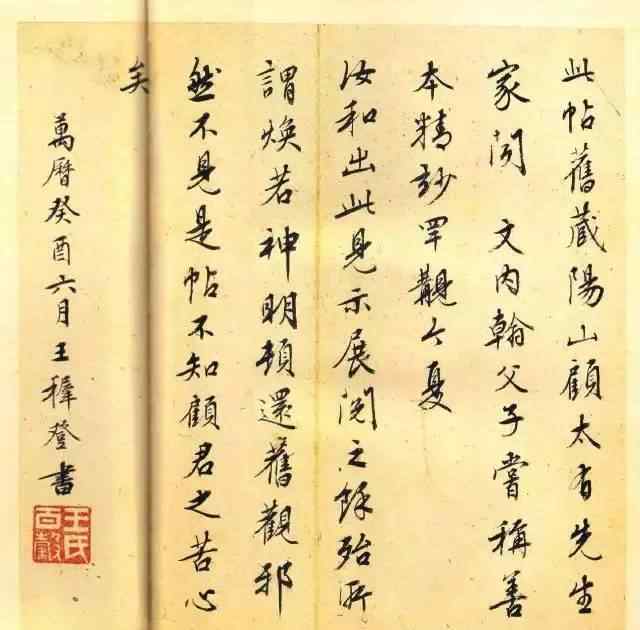 此帖舊藏陽山顧太有先生
家閱 文內翰父子嘗稱善
本精玅罕覯今夏
汝和出此見示展閱之餘殆所
謂煥若神明頓還舊觀邪
然不見是帖不知顧君之苦心
矣
萬曆癸酉六月王穉登書
王氏百穀